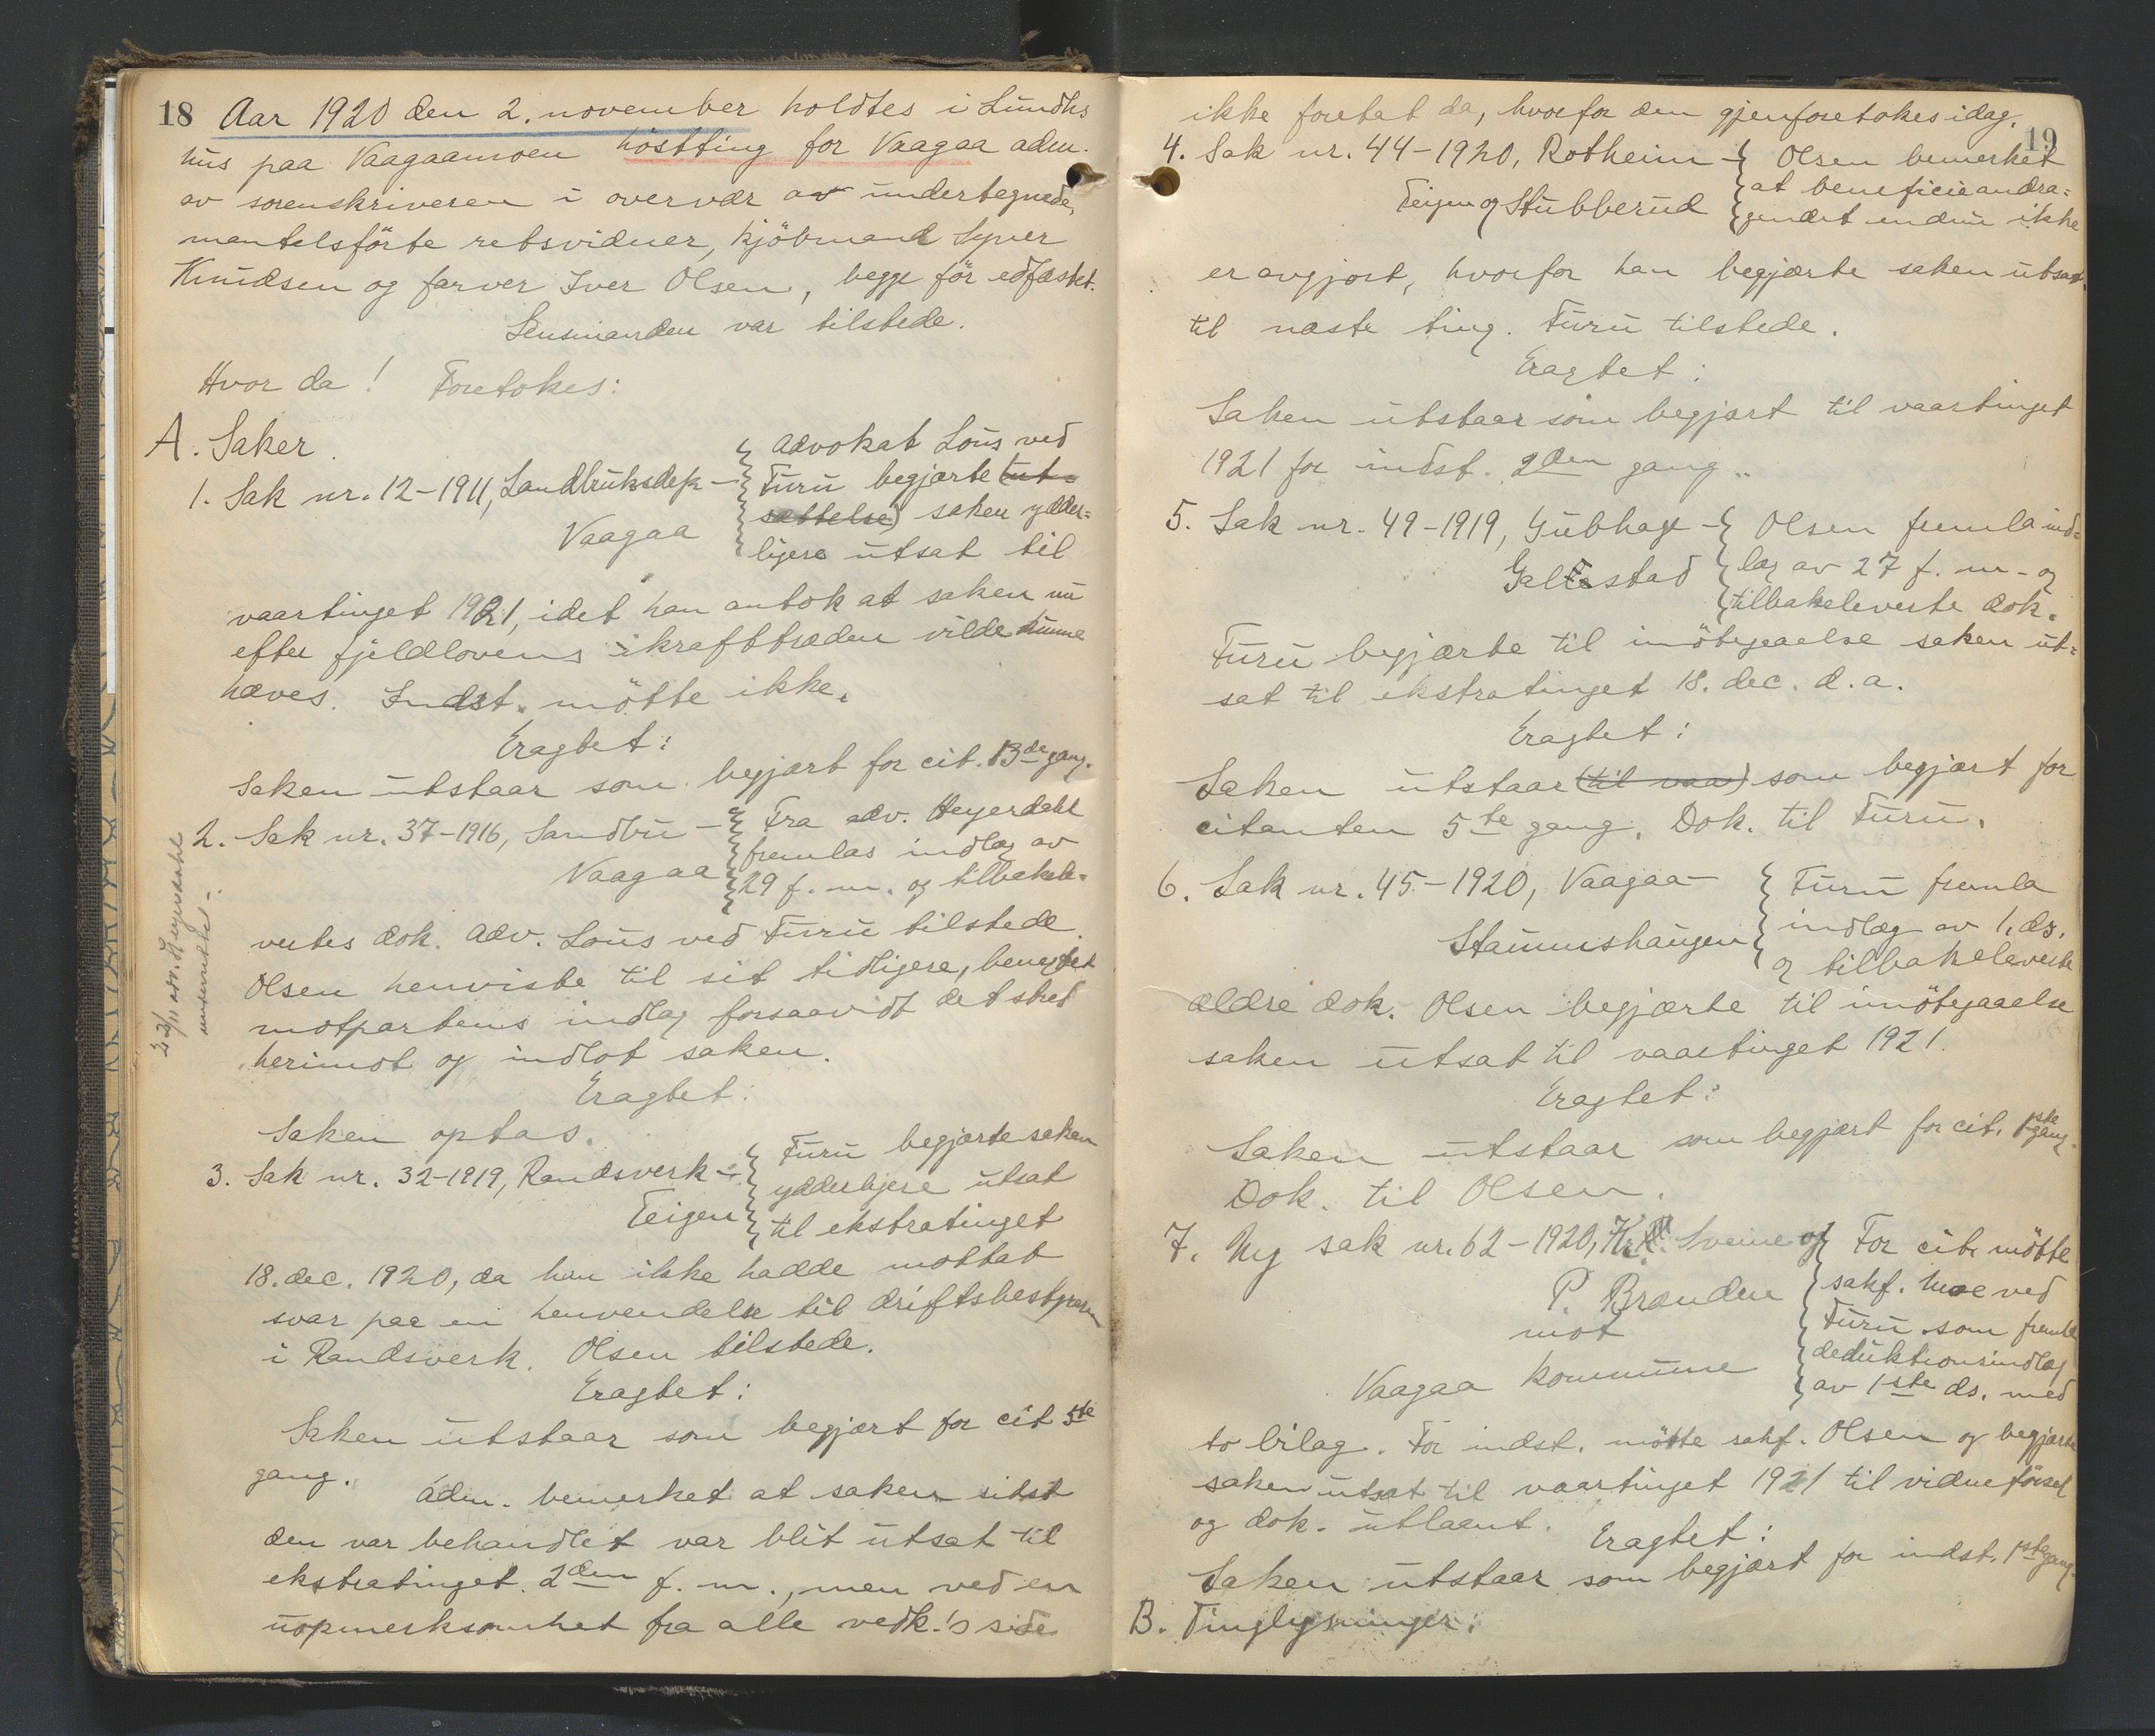 18 Aar 1920 den 2. november holdtes i Lundhs
hus paa Vaagaamoen höstting for Vaagaa adm.
av sorenskriveren i overvær av undertegnede,
mentelsförte retsvidner, kjöbmand Syver
Knudsen og farver Iver Olsen, begge för edfæstet.
Lensmanden var tilstede.
Hvor da! Foretokes:
A. Saker.
1. Sak nr. 12-1911, Landbruksdep -
Vaagaa
advokat Lous ved
Furu begjærte (ut-
sættelse) saken ydder-
ligere utsat til
vaartinget 1921, idet han antok at saken nu
efter fjeldlovens ikrafttræden vilde kunne
hæves. Indst. mötte ikke.
Eragtet:
Saken utstaar som begjært for cit. 13de gang.
2. Sak nr. 37-1916, Sandbu -
Vaagaa
Fra adv. Heyerdahl
fremlas indlæg av
29 f. m. og tilbakele-
vertes dok. Adv. Lous ved Furu tilstede.
Olsen henviste til sit tidligere, benegtet
motpartens indlæg forsaavidt det stred
herimot og indlot saken.
Eragtet:
Saken optas.
23/11 adv. Heyerdahl
3. Sak nr. 32-1919, Randsverk -
Teigen
Furu begjærte saken
ydderligere utsat
til ekstratinget
18. dec. 1920, da han ikke hadde mottat
svar paa en henvendelse til driftsbestyreren
i Randsverk. Olsen tilstede.
Eragtet:
Saken utstaar som begjært for cit 5te
gang.
Adm. bemerket at saken sidst
den var behandlet var blit utsat til
ekstratinget 2den f. m., men ved en
uopmerksomhet fra alle vedk.'s side
19
ikke foretat da, hvorfor den gjenforetokes idag.
4. Sak nr. 44-1920, Rotheim -
Teigen og Stubberud
Olsen bemerket
at beneficieandra-
gendet endnu ikke
er avgjort, hvorfor han begjærte saken utsat
til næste ting. Furu tilstede.
Eragtet:
Saken utstaar som begjært til vaartinget
1921 for indst. 2den gang.
5. Sak nr. 49-1919, Gubhage -
Galtestad
Olsen fremla ind-
læg av 27 f. m. og
tilbakeleverte dok.
Furu begjærte til imötegaaelse saken ut-
sat til ekstratinget 18. dec. d. a.
Eragtet:
Saken utstaar (til vaa) som begjært for
citanten 5te gang. Dok. til Furu.
6. Sak nr. 45-1920, Vaagaa -
Stamnshaugen
Furu fremla
indlæg av 1. ds.
og tilbakeleverte
ældre dok. Olsen begjærte til imötegaaelse
saken utsat til vaartinget 1921.
Eragtet:
Saken utstaar som begjært for cit. 1ste gang.
Dok. til Olsen.
7. Ny sak nr. 62-1920, Kr. Sveine og
P. Branden
mot
Vaagaa kommune
For cit. mötte
sakf. Moe ved
Furu som fremla
deduktionsindlæg
av 1ste ds. med
to bilag. For indst. mötte sakf. Olsen og begjærte
saken utsat til vaartinget 1921 til vidneförsel
og dok. utlaant.
Eragtet:
Saken utstaar som begjært for indst. 1ste gang.
B. Tinglysninger: